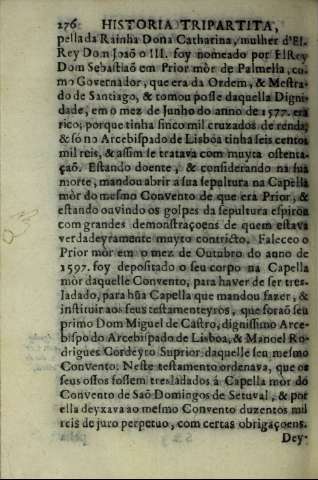 276 HISTORIA TRIPARTITA,
pella da Rainha Dona Catharina, mulher d'El-
Rey Dom Joaõ o III. foy nomeado por ElRey
Dom Sebastiaõ em Prior mòr de Palmella, co-
mo Governador, que era da Ordem, & Mestra-
do de Santiago, & tomou posse daquella Digni-
dade, em o mez de Junho do anno de 1577. era
rico; porque tinha sinco mil cruzados de renda;
& só no Arcebispado de Lisboa tinha seis centos
mil reis, & assim se tratava com muyta ostenta-
çaõ. Estando doente, & considerando na sua
morte, mandou abrir a sua sepultura na Capella
mór do mesmo Convento de que era Prior, &
estando ouvindo os golpes da sepultura espirou
com grandes demonstraçoens de quem estava
verdadeyramente muyto contricto. Faleceo o
Prior mòr em o mez de Outubro do anno de
1597. foy depositado o seu corpo na Capella
mòr daquelle Convento, para haver de ser tres-
ladado, para hũa Capella que mandou fazer, &
instituir aos seus testamenteyros, que foraõ seu
primo Dom Miguel de Castro, dignissimo Arce-
bispo do Arcebispado de Lisboa, & Manoel Ro-
drigues Cordeyro Suprior daquelle seu mesmo
Convento: Neste testamento ordenava, que os
seus ossos fossem tresladados à Capella mòr do
Convento de Saõ Domingos de Setuval, & por
ella deyxava ao mesmo Convento duzentos mil
reis de juro perpetuo, com certas obrigaçoens.
Dey-